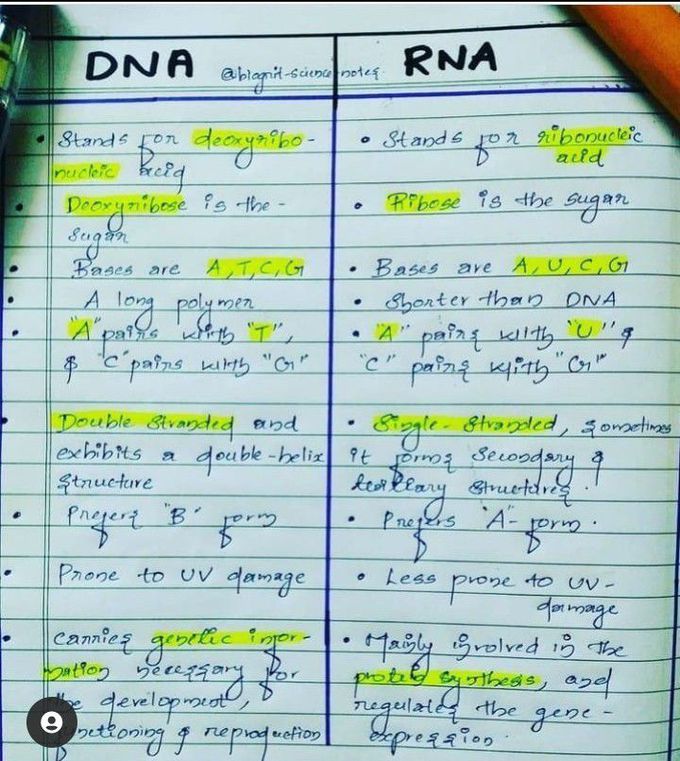 DNA @biogrit-science-notes RNA
• Stands for deoxyribo-
nucleic acid
• Deoxyribose is the -
sugar
• Bases are A,T,C,G
• A long polymer
• "A" pairs with "T",
& "C" pairs with "G"
• Double Stranded and
exhibits a double-helix
structure
• Prefers "B" form
• Prone to UV damage
• carries genetic infor-
mation necessary for
the development,
functioning & reproduction
• Stands for ribonucleic
acid
• Ribose is the sugar
• Bases are A, U, C, G
• Shorter than DNA
• "A" pairs with "U" &
"C" pairs with "G"
• Single-Stranded, sometimes
it forms Secondary &
tertiary structures.
• Prefers "A"-form.
• Less prone to UV-
damage
• Mainly involved in the
protein synthesis, and
regulates the gene-
expression.